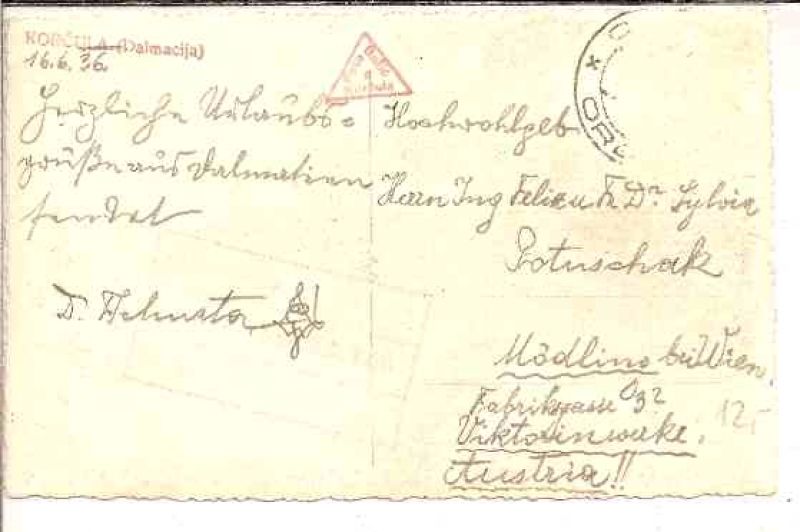 KORČULA (Dalmacija)
16.6.36.
Herzliche Urlaubs=
grüße aus Dalmatien
sendet
Hochwohlgeb
Herrn Ing Felix u Fr Dr. Sylvia
Potuschak
Mödling bei Wien.
Fabriksgasse
Viktorinwerke.
Austria!!
12,-